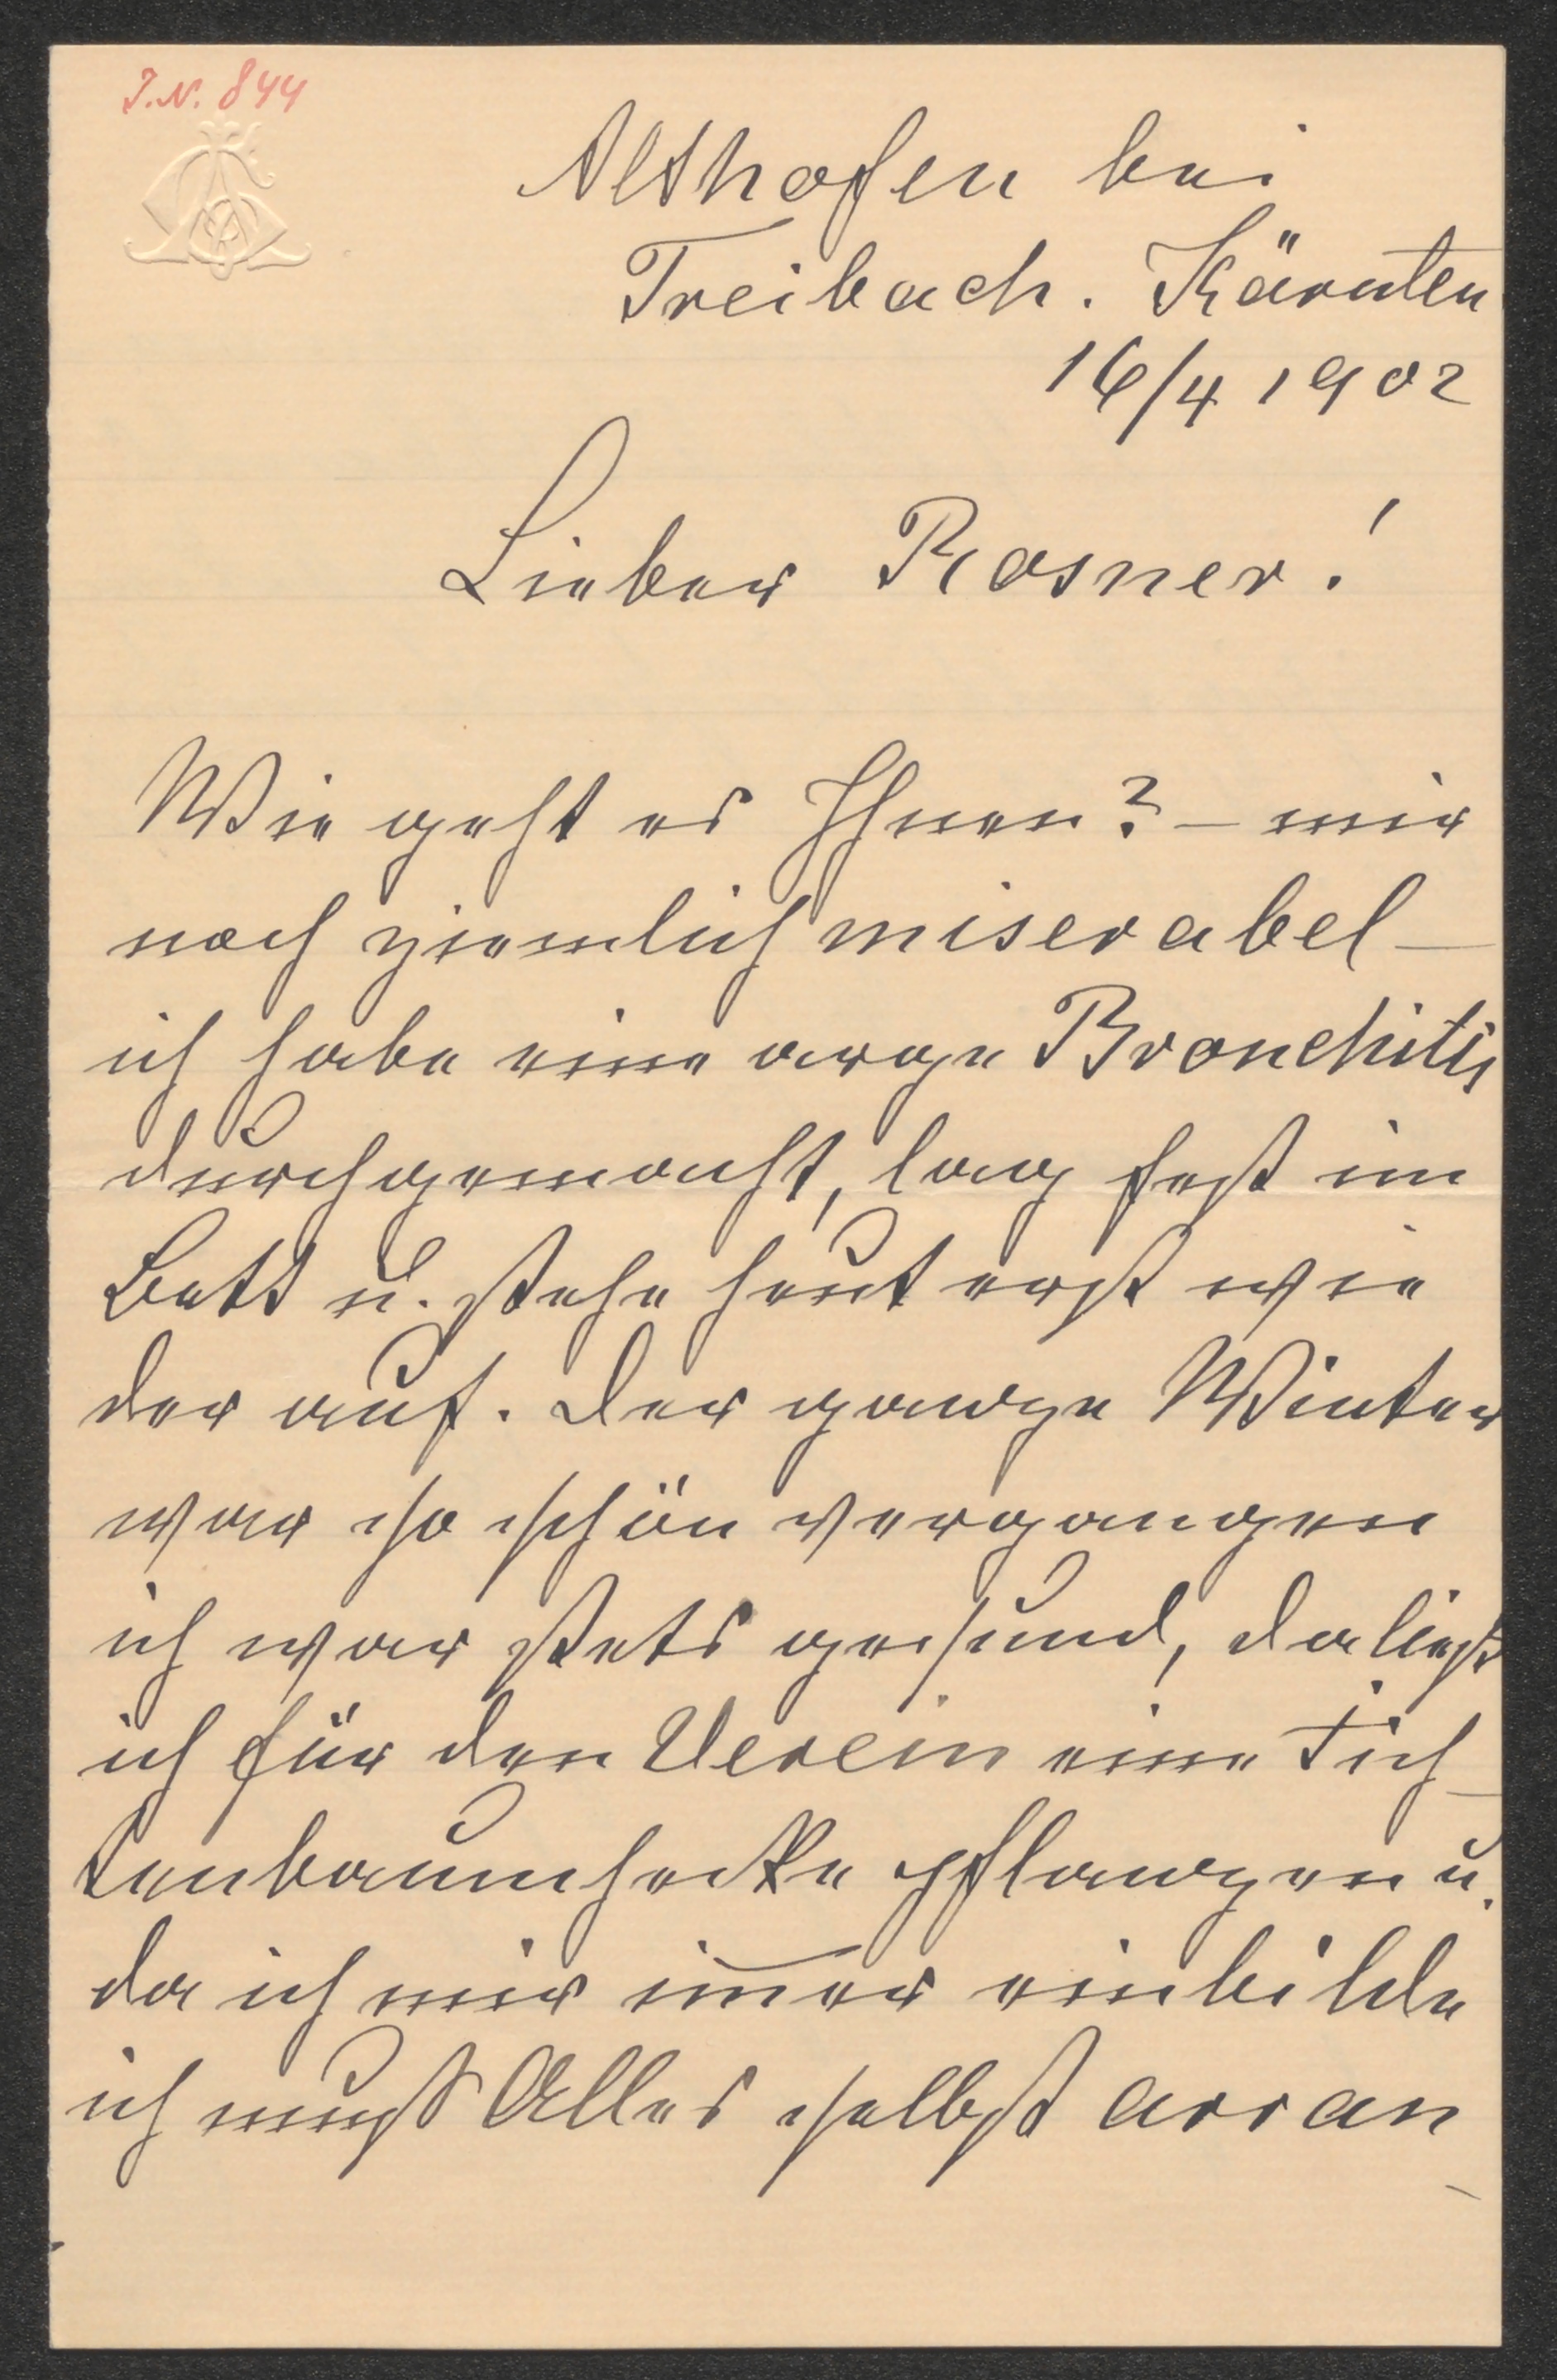 J.N. 844
Althofen bei
Treibach. Kärnten
16/4 1902
Lieber Rosner!
Wie geht es Ihnen? – mir
noch ziemlich miserabel –
ich habe eine arge Bronchitis
durchgemacht, lag fest im
Bett u. stehe heut erst wie
der auf. Der ganze Winter
war so schön vergangen
ich war stets gesund, da ließ
ich für den Verein eine Fich-
tenbaumhecke pflanzen u.
da ich mir im̄er einbilde
ich muß Alles selbst arran
-